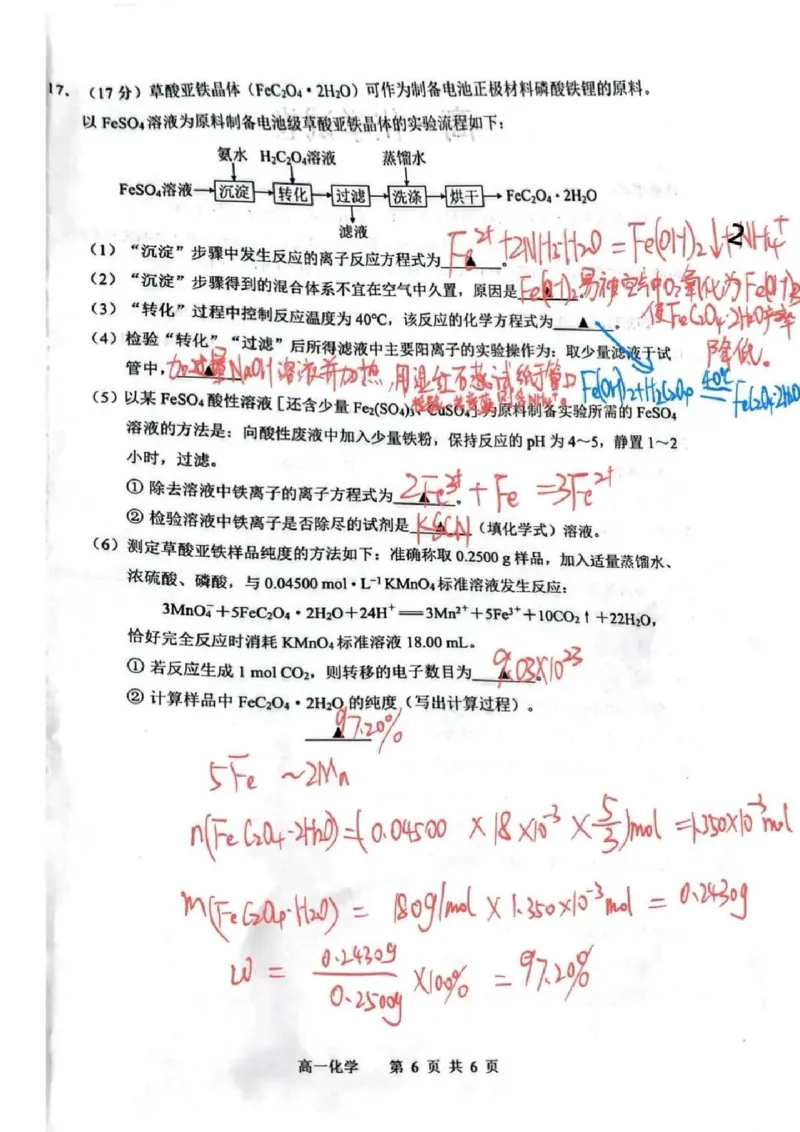 17. (17分) 草酸亚铁晶体 (FeC₂O₄·2H₂O) 可作为制备电池正极材料磷酸铁锂的原料。
以 FeSO₄ 溶液为原料制备电池级草酸亚铁晶体的实验流程如下:
氨水 H₂C₂O₄溶液 蒸馏水
FeSO₄溶液→沉淀→转化→过滤→洗涤→烘干→FeC₂O₄·2H₂O
滤液
(1) "沉淀"步骤中发生反应的离子反应方程式为 ▲ 。 Fe²⁺+2NH₃·H₂O = Fe(OH)₂↓+2NH₄⁺
(2) "沉淀"步骤得到的混合体系不宜在空气中久置, 原因是 ▲ 。 Fe(OH)₂易被空气中O₂氧化为Fe(OH)₃
(3) "转化"过程中控制反应温度为 40℃, 该反应的化学方程式为 ▲ 。 使FeC₂O₄·2H₂O产率
降低。
(4) 检验"转化"、"过滤"后所得滤液中主要阳离子的实验操作为: 取少量滤液于试
管中, ▲ 加过量NaOH溶液并加热,用湿红石蕊试纸于管口
Fe(OH)₂+H₂C₂O₄ 40℃ = FeC₂O₄·2H₂O
(5) 以某 FeSO₄ 酸性溶液 [还含少量 Fe₂(SO₄)₃、CuSO₄] 为原料制备实验所需的 FeSO₄
溶液的方法是: 向酸性废液中加入少量铁粉, 保持反应的 pH 为 4~5, 静置 1~2
小时, 过滤。
① 除去溶液中铁离子的离子方程式为 ▲ 。 2Fe³⁺+Fe =3Fe²⁺
② 检验溶液中铁离子是否除尽的试剂是 ▲ KSCN (填化学式) 溶液。
(6) 测定草酸亚铁样品纯度的方法如下: 准确称取 0.2500 g 样品, 加入适量蒸馏水、
浓硫酸、磷酸, 与 0.04500 mol·L⁻¹ KMnO₄ 标准溶液发生反应:
3MnO₄⁻+5FeC₂O₄·2H₂O+24H⁺══3Mn²⁺+5Fe³⁺+10CO₂↑+22H₂O,
恰好完全反应时消耗 KMnO₄ 标准溶液 18.00 mL。
① 若反应生成 1 mol CO₂, 则转移的电子数目为 ▲ 。 9.03×10²³
② 计算样品中 FeC₂O₄·2H₂O 的纯度 (写出计算过程) 。
▲ 97.20%
5Fe ~2Mn
n(FeC₂O₄·2H₂O)=(0.04500 ×18×10⁻³ × 5/3)mol =1.350×10⁻³mol
m(FeC₂O₄·H₂O) = 180g/mol × 1.350×10⁻³mol = 0.2430g
w = 0.2430g/0.2500g ×100% = 97.20%
高一化学 第 6 页 共 6 页